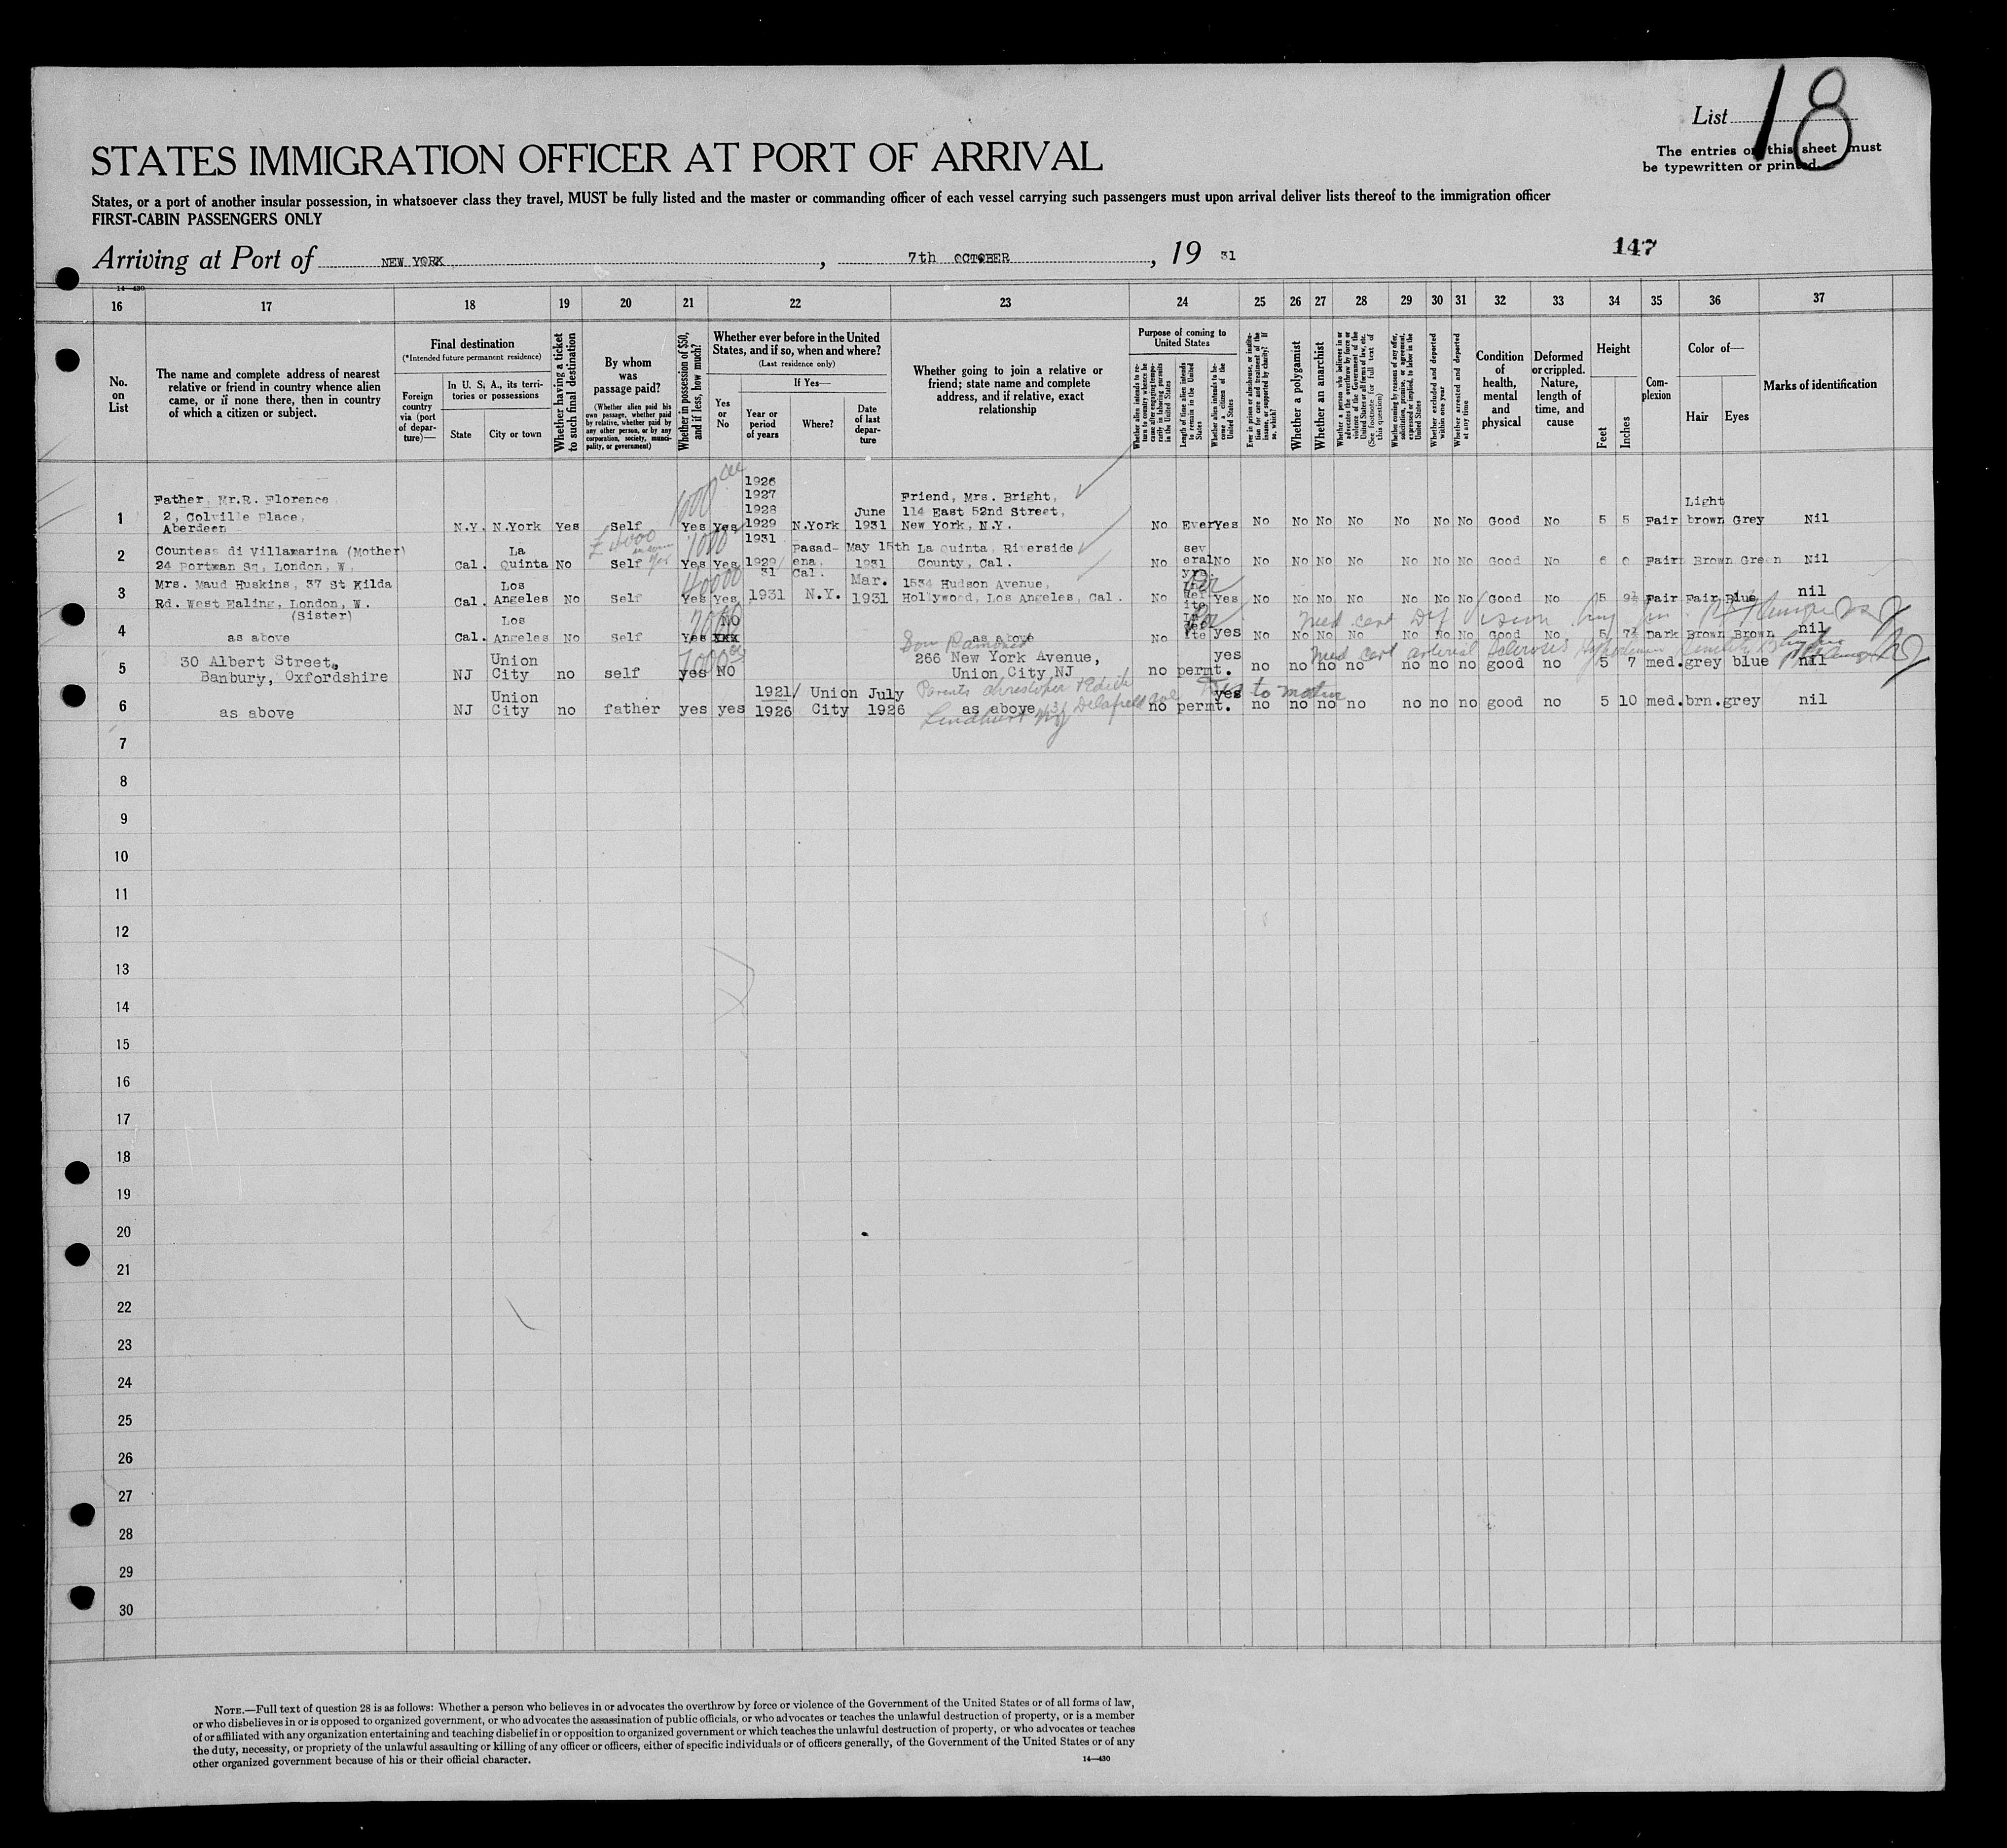 List 18
The entries on this sheet must
be typewritten or printed.
STATES IMMIGRATION OFFICER AT PORT OF ARRIVAL
States, or a port of another insular possession, in whatsoever class they travel, MUST be fully listed and the master or commanding officer of each vessel carrying such passengers must upon arrival deliver lists thereof to the immigration officer
FIRST-CABIN PASSENGERS ONLY
Arriving at Port of NEW YORK, 7th OCTOBER, 19 31
147
14—430
16 17 18 19 20 21 22 23 24 25 26 27 28 29 30 31 32 33 34 35 36 37
No.
on
List
The name and complete address of nearest
relative or friend in country whence alien
came, or if none there, then in country
of which a citizen or subject.
Final destination
(*Intended future permanent residence)
Foreign
country
via (port
of depar-
ture)—
In U. S. A., its terri-
tories or possessions
State
City or town
Whether having a ticket
to such final destination
By whom
was
passage paid?
(Whether alien paid his
own passage, whether paid
by relative, whether paid by
any other person, or by any
corporation, society, munici-
pality, or government)
Whether in possession of $50,
and if less, how much?
Whether ever before in the United
States, and if so, when and where?
(Last residence only)
Yes
or
No
If Yes—
Year or
period
of years
Where?
Date
of last
depar-
ture
Whether going to join a relative or
friend; state name and complete
address, and if relative, exact
relationship
Purpose of coming to
United States
Whether alien intends to re-
turn to country whence he
came after engaging tempo-
rarily in laboring pursuits
in the United States
Length of time alien intends
to remain in the United
States
Whether alien intends to be-
come a citizen of the
United States
Ever in prison or almshouse, or institu-
tion for care and treatment of the
insane, or supported by charity? If
so, which?
Whether a polygamist
Whether an anarchist
Whether a person who believes in or
advocates the overthrow by force or
violence of the Government of the
United States or all forms of law, etc.
(See footnote for full text of
this question)
Whether coming by reasons of any offer,
solicitation, promise, or agreement,
expressed or implied, to labor in the
United States
Whether excluded and deported
within one year
Whether arrested and deported
at any time
Condition
of
health,
mental
and
physical
Deformed
or crippled.
Nature,
length of
time, and
cause
Height
Feet
Inches
Com-
plexion
Color of—
Hair
Eyes
Marks of identification
1
Father, Mr.R. Florence
2, Colville Place,
Aberdeen
N.Y. N.York Yes Self Yes Yes
1000
1926
1927
1928
1929
1931
N.York
June
1931
Friend, Mrs. Bright,
114 East 52nd Street,
New York, N.Y.
No Ever Yes No No No No No No No Good No 5 5 Fair
Light
brown Grey Nil
2
Countess di Villamarina (Mother)
24 Portman Sq, London, W.
Cal.
La
Quinta No Self Yes Yes
1000
1929/
31
Pasad-
ena,
Cal.
May 15th
1931
La Quinta, Riverside
County, Cal.
No
sev
eral
yrs.
No No No No No No No No Good No 6 0 Fair Brown Green Nil
3
Mrs. Maud Huskins, 37 St Kilda
Rd. West Ealing, London, W.
(Sister)
Cal.
Los
Angeles No Self Yes Yes
1931 N.Y.
Mar.
1931
1534 Hudson Avenue,
Hollywood, Los Angeles, Cal.
No Yes No No No No No No No Good No 5 9½ Fair Fair Blue nil
4
as above
Cal.
Los
Angeles No Self Yes
NO
as above
No yes No No No No No No No Good No 5 7½ Dark Brown Brown nil
Med cert
5
30 Albert Street,
Banbury, Oxfordshire
NJ
Union
City no self yes NO
266 New York Avenue,
Union City, NJ
no permt.
yes
no no no no no no no good no 5 7 med. grey blue nil
Med cert arterial sclerosis
6
as above
NJ
Union
City no father yes yes
1921/
1926
Union
City
July
1926
as above
no permt.
yes
no no no no no no no good no 5 10 med. brn. grey nil
to mother
7
8
9
10
11
12
13
14
15
16
17
18
19
20
21
22
23
24
25
26
27
28
29
30
NOTE.—Full text of question 28 is as follows: Whether a person who believes in or advocates the overthrow by force or violence of the Government of the United States or of all forms of law,
or who disbelieves in or is opposed to organized government, or who advocates the assassination of public officials, or who advocates or teaches the unlawful destruction of property, or is a member
of or affiliated with any organization entertaining and teaching disbelief in or opposition to organized government or which teaches the unlawful destruction of property, or who advocates or teaches
the duty, necessity, or propriety of the unlawful assaulting or killing of any officer or officers, either of specific individuals or of officers generally, of the Government of the United States or of any
other organized government because of his or their official character.
14—430